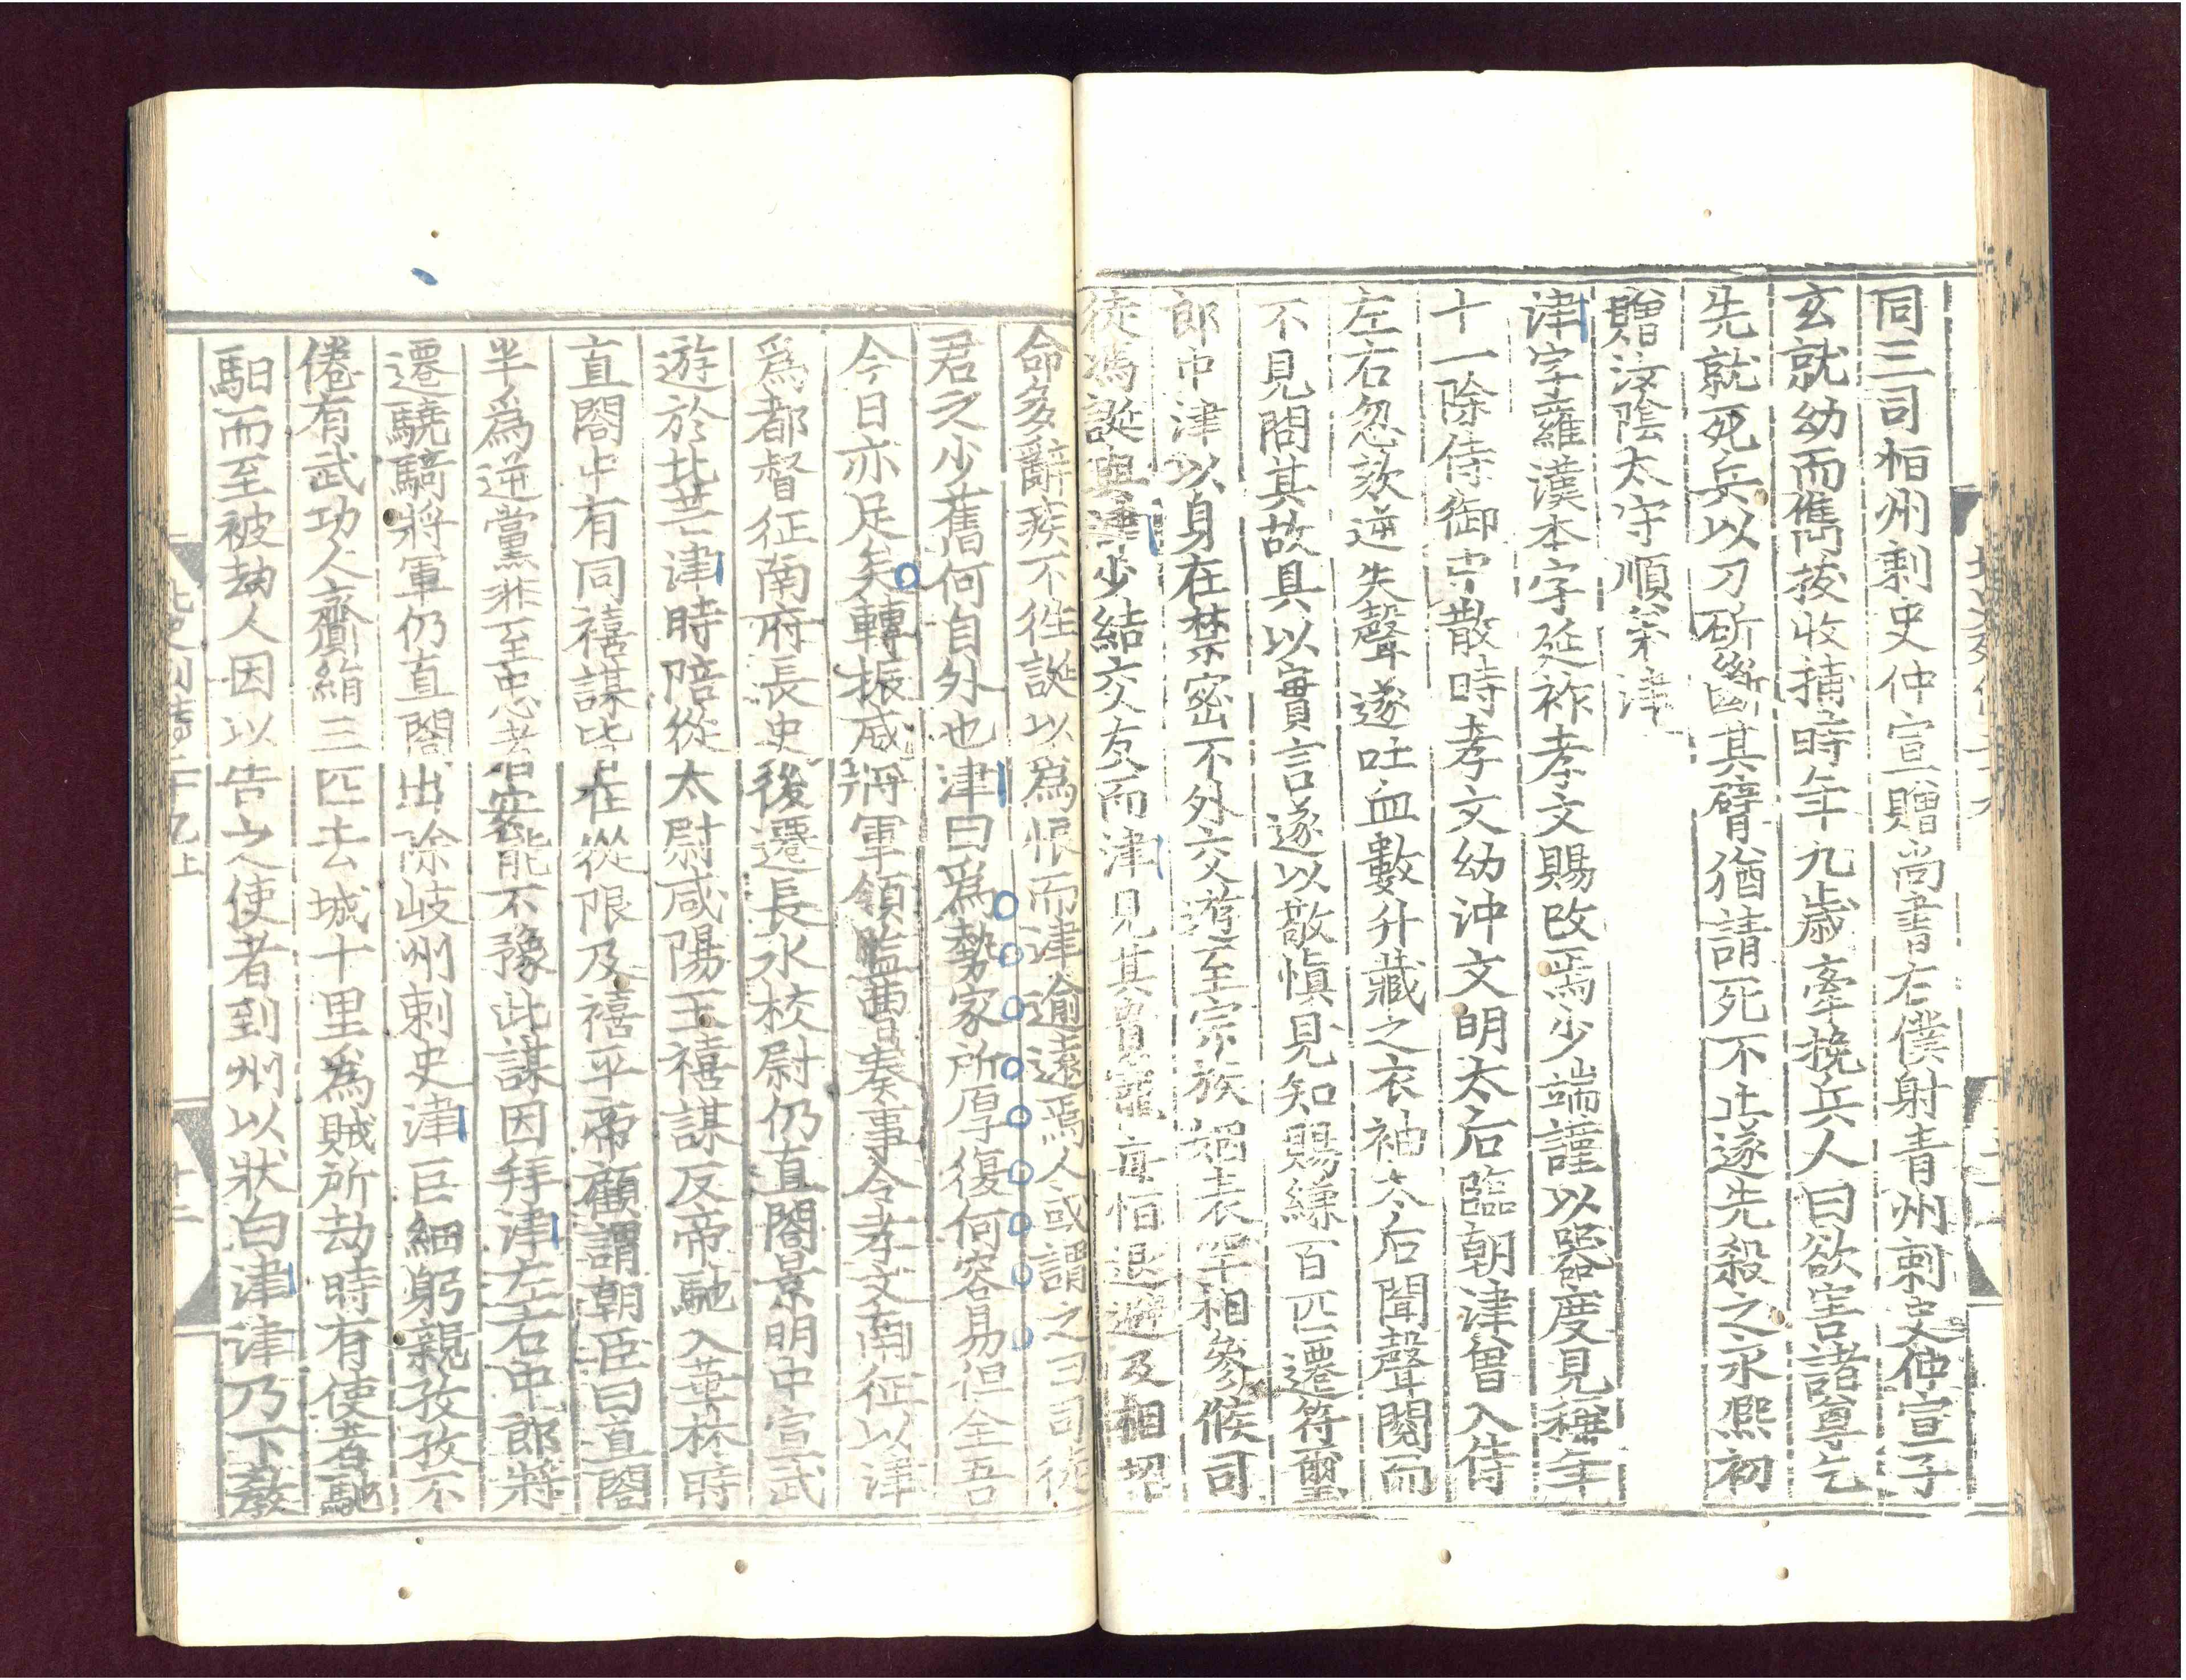 同三司相州剌史仲宣贈尚書右僕射青州剌史仲宣子
玄就幼而儁拔收捕時年九歲牽挽兵人曰欲害諸尊乞
先就死兵以刀斫斷其臂猶請死不止遂先殺之永熙初
贈汝陰太守順弟津
津字羅漢本字延祚孝文賜改焉少端謹以器度見稱年
十一除侍御中散時孝文幼沖文明太后臨朝津曽入侍
左右忽欬逆失聲遂吐血數升藏之衣袖太后聞聲閱而
不見問其故具以實言遂以敬慎見知賜縑百匹遷符璽
郎中津以身在禁密不外交游至宗族姻表罕相參候司
徒馮誕與津少結交友而津見其貴寵每恒退避及相招
命多辭疾不往誕以爲恨而津逾遠焉人或謂之曰司徒
君之少舊何自外也津曰爲勢家所厚復何容易但全吾
今日亦足矣轉振威將軍領監曹奏事令孝文南征以津
爲都督征南府長史後遷長水校尉仍直閤景明中宣武
遊於北芒津時陪從太尉咸陽王禧謀反帝馳入華林時
直閤中有同禧謀皆在從限及禧平帝顧謂朝臣曰直閤
半爲逆黨非至忠者安能不豫此謀因拜津左右中郎將
遷驍騎將軍仍直閤出除岐州剌史津巨細躬親孜孜不
倦有武功人齎絹三匹去城十里爲賊所劫時有使者馳
馹而至被劫人因以告之使者到州以狀白津津乃下敎